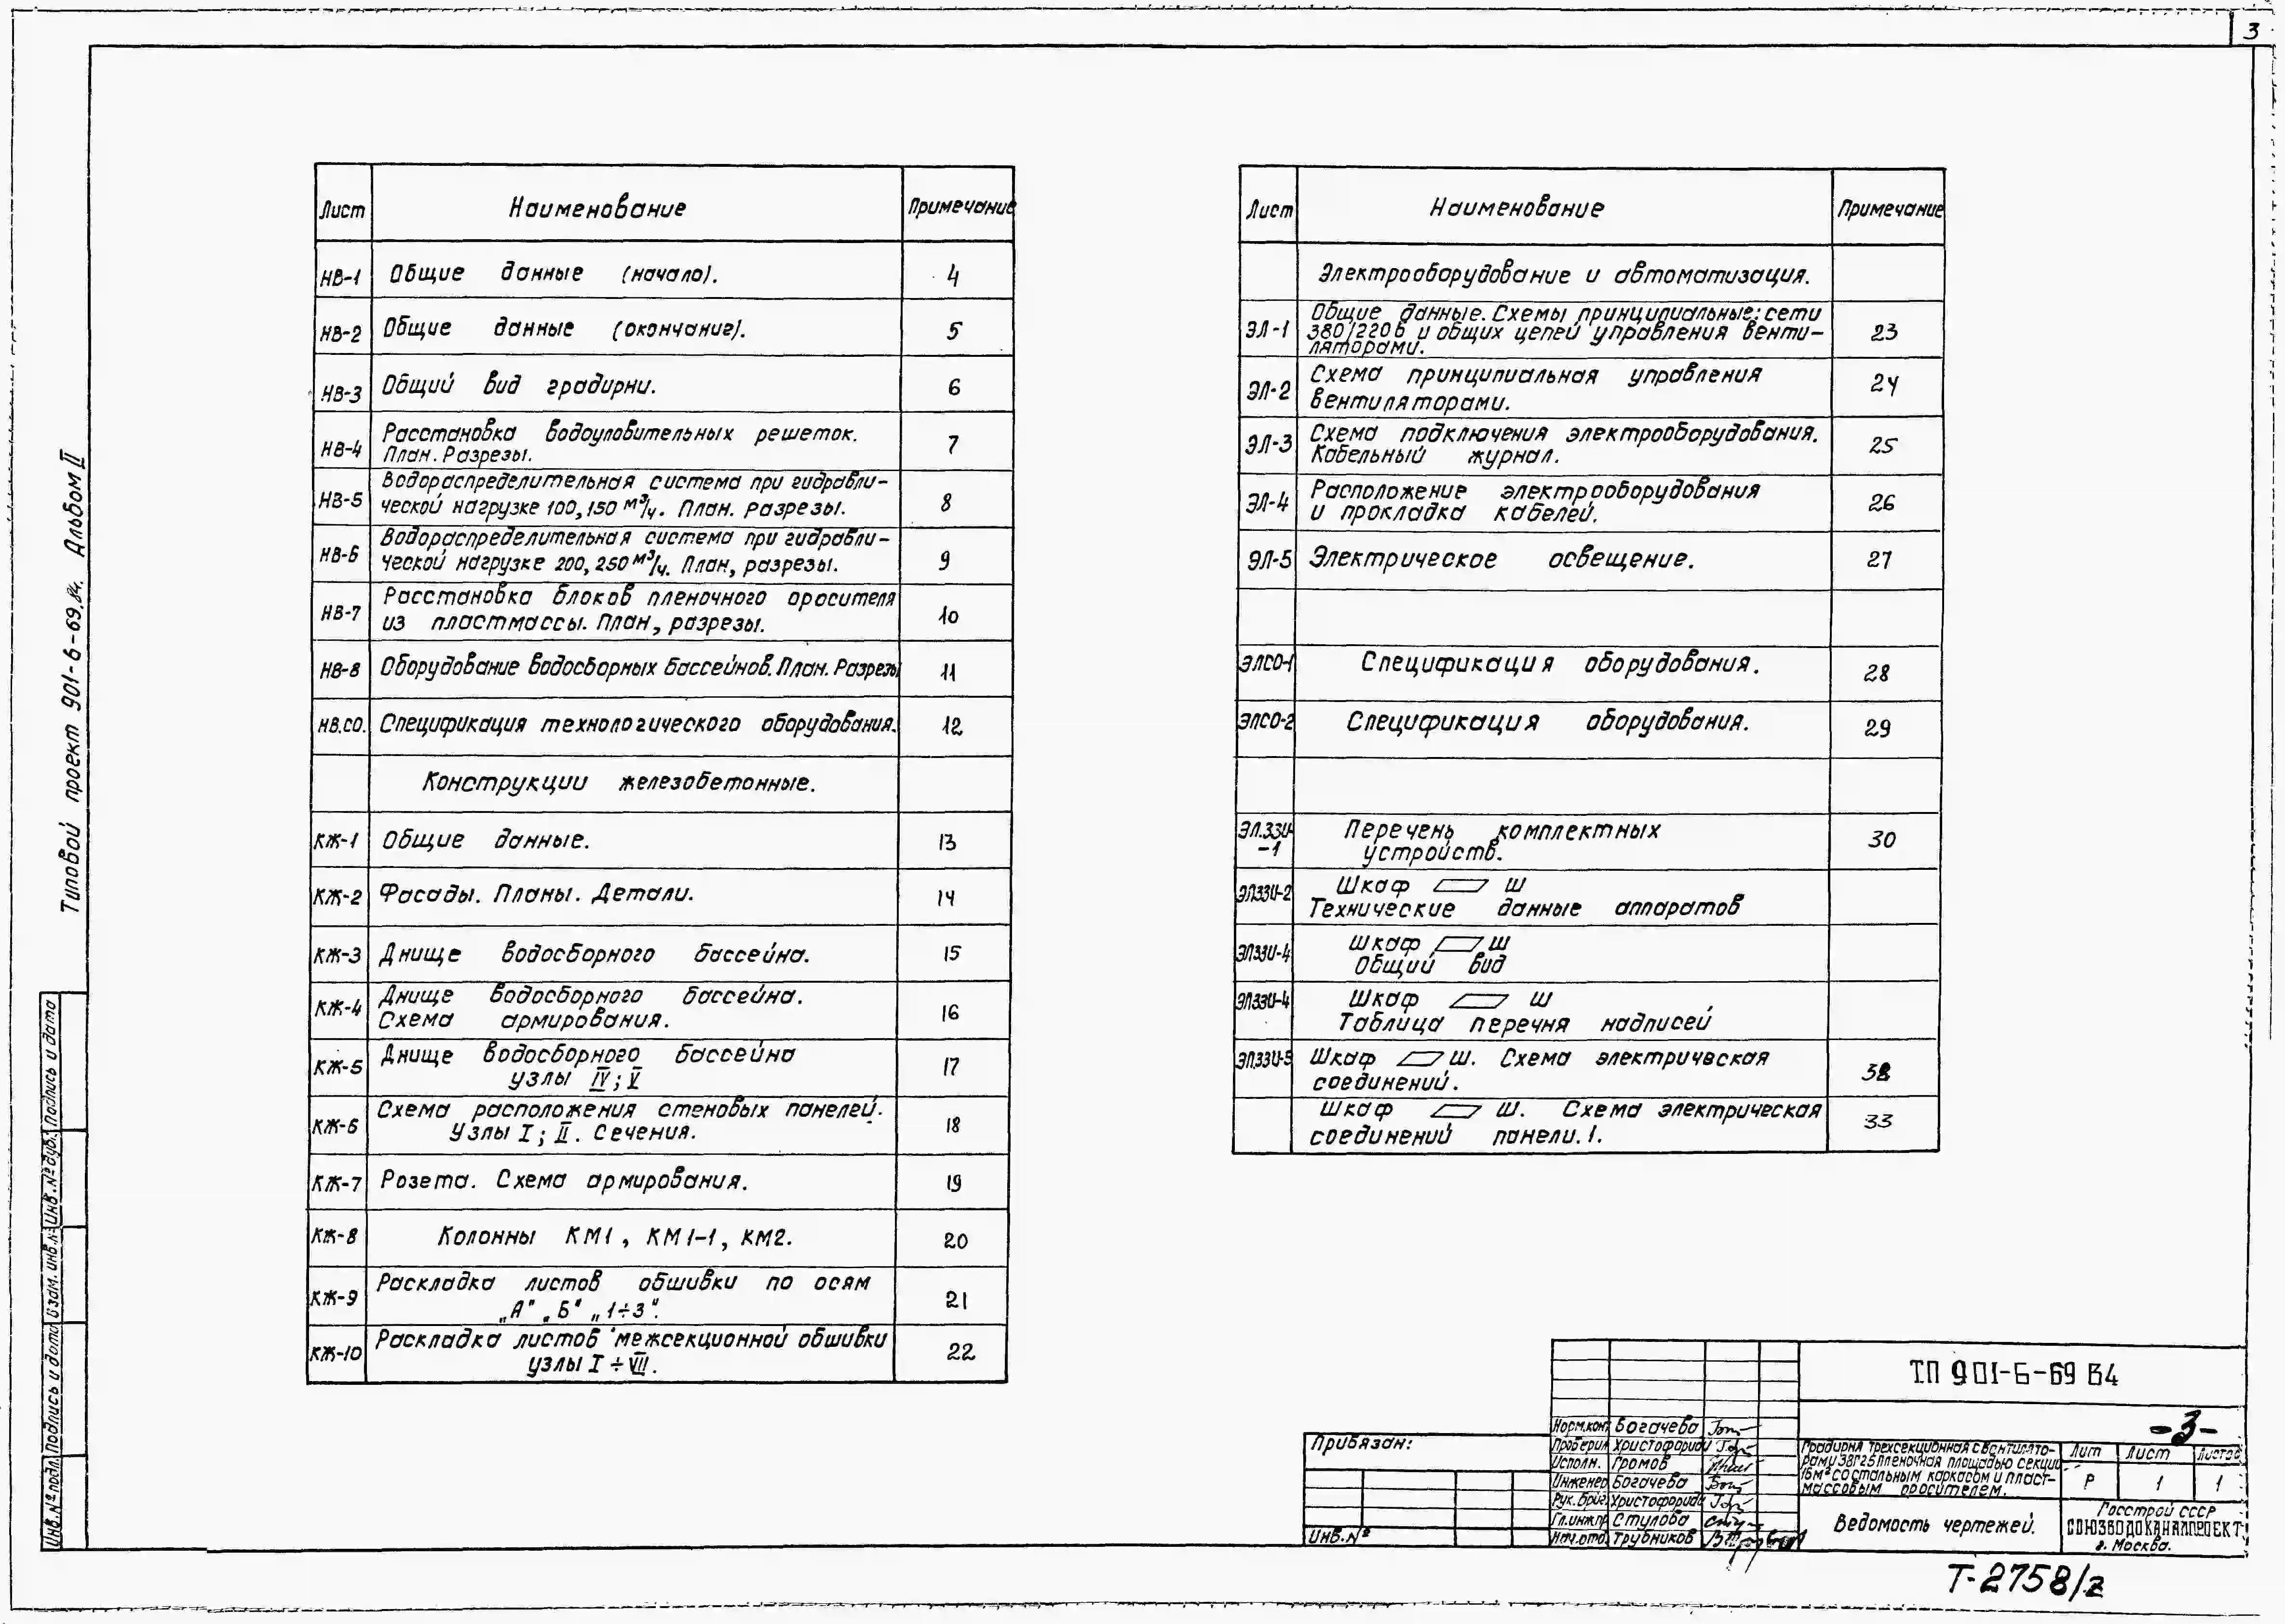 3
Типовой проект 901-6-69.84. Альбом II
Лист Наименование Примечание
НВ-1 Общие данные (начало). 4
НВ-2 Общие данные (окончание). 5
НВ-3 Общий вид градирни. 6
НВ-4 Расстановка водоуловительных решеток.
План. Разрезы. 7
НВ-5 Водораспределительная система при гидравли-
ческой нагрузке 100, 150 м³/ч. План. разрезы. 8
НВ-6 Водораспределительная система при гидравли-
ческой нагрузке 200, 250 м³/ч. План, разрезы. 9
НВ-7 Расстановка блоков пленочного оросителя
из пластмассы. План, разрезы. 10
НВ-8 Оборудование водосборных бассейнов. План. Разрезы 11
НВ.СО. Спецификация технологического оборудования. 12
Конструкции железобетонные.
КЖ-1 Общие данные. 13
КЖ-2 Фасады. Планы. Детали. 14
КЖ-3 Днище водосборного бассейна. 15
КЖ-4 Днище водосборного бассейна.
Схема армирования. 16
КЖ-5 Днище водосборного бассейна
узлы IV; V 17
КЖ-6 Схема расположения стеновых панелей.
Узлы I; II. Сечения. 18
КЖ-7 Розета. Схема армирования. 19
КЖ-8 Колонны КМ1, КМ1-1, КМ2. 20
КЖ-9 Раскладка листов обшивки по осям
„А" „Б" „1÷3". 21
КЖ-10 Раскладка листов межсекционной обшивки
узлы I ÷ VII. 22
Лист Наименование Примечание
Электрооборудование и автоматизация.
ЭЛ-1 Общие данные. Схемы принципиальные: сети
380/220в и общих цепей управления венти-
ляторами. 23
ЭЛ-2 Схема принципиальная управления
вентиляторами. 24
ЭЛ-3 Схема подключения электрооборудования.
Кабельный журнал. 25
ЭЛ-4 Расположение электрооборудования
и прокладка кабелей. 26
ЭЛ-5 Электрическое освещение. 27
ЭЛСО-1 Спецификация оборудования. 28
ЭЛСО-2 Спецификация оборудования. 29
ЭЛ.ЗЗИ-1 Перечень комплектных
устройств. 30
ЭЛЗЗИ-2 Шкаф Ш
Технические данные аппаратов
ЭЛЗЗИ-4 Шкаф Ш
Общий вид
ЭЛЗЗИ-4 Шкаф Ш
Таблица перечня надписей
ЭЛ.ЗЗИ-5 Шкаф Ш. Схема электрическая
соединений.
Шкаф Ш. Схема электрическая
соединений панели. 1. 33
Подпись и дата
Инв. № дуб.
Взам. инв. №
Подпись и дата
Инв. № подл.
Привязан:
Инв. №
Норм.кон. Богачева
Проверил Христофориди
Исполн. Громов
Инженер Богачева
Рук. бриг. Христофориди
Гл.инж.пр Стулова
Нач.отд. Трубников
ТП 901-6-69 84
-3-
Градирня трехсекционная с вентилято-
рами 3ВГ25 пленочная площадью секции
16м² со стальным каркасом и пласт-
массовым оросителем.
Лит Лист Листов
Р 1 1
Ведомость чертежей.
Госстрой СССР
СОЮЗВОДОКАНАЛПРОЕКТ
г. Москва.
Т-2758/2